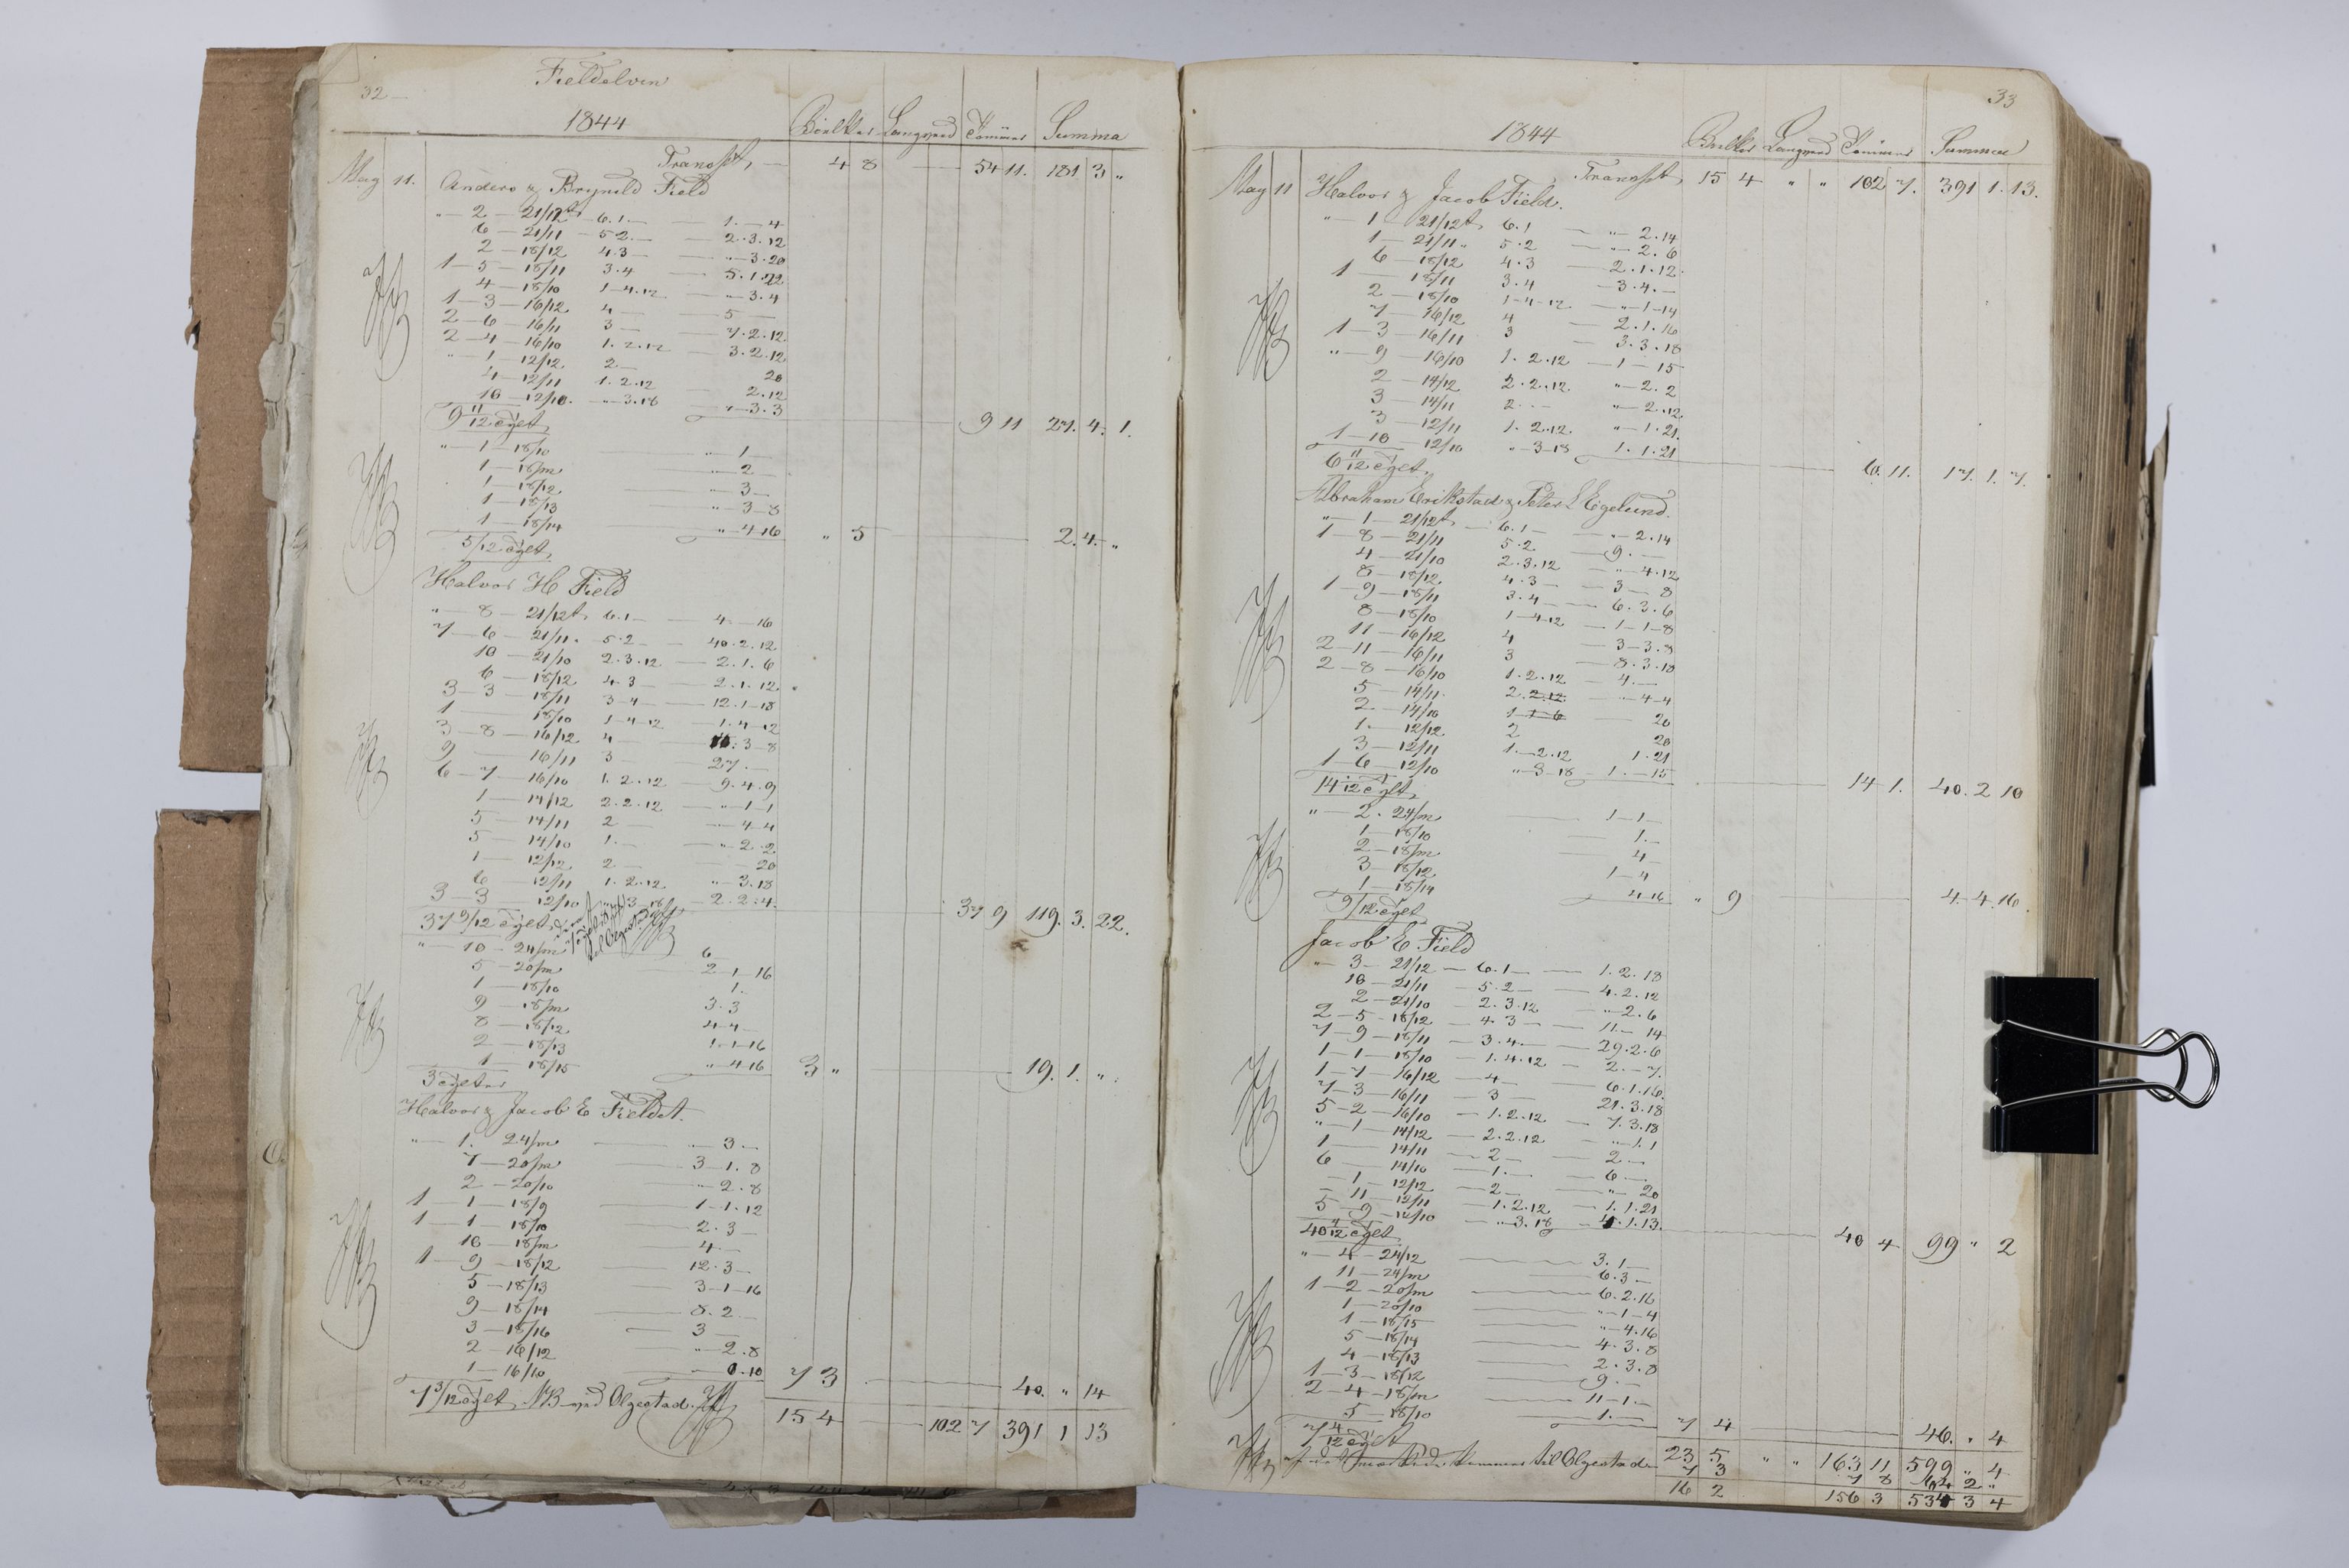 32
Fieldelven
1844 Bielker Langved Tømmer Summa
Transpt, 4 8 54 11. 181 3 "
May 11. Anders & Bryneld Field
" 2 — 21/12t 6.1 — 1. — 4
6 — 21/11 — 5 2. — 2.3.12
2 — 18/12 4.3 — " 3.20
1 — 5 — 18/11 3.4 — 5.1.22
4 — 18/10 1-4.12 — " 3.4
1 — 3 — 16/12 4 — 5 —
2 — 6 — 16/11 3 — 7.2.12
2 — 4 — 16/10 1.2.12 — 3.2.12
" — 1 — 12/12 2 — 20
4 — 12/11 1.2.12 2.12
10 — 12/10. " 3.18 " 3.3
9 11/12 čylt, 9 11 27. 4. 1.
" — 1 — 18/10 " 1 —
1 — 18/m " 2 —
1 — 18/12 " 3 —
1 — 18/13 " 3 — 8
1 — 18/14 " 4 16
5/12 čylt, " 5 2. 4. "
Halvor H Field
" — 8 — 21/12t, 6.1 — 4. — 16
7 — 6 — 21/11. 5.2 — 40.2.12
10 — 21/10 2.3.12 — 2.1.6
6 — 18/12 4.3 — 2.1.12
3 — 3 — 18/11 3-4 — 12.1-18
1 — 18/10 1-4-12 1.4-12
3 — 8 — 16/12 4 — 3-8
9 — 16/11 3 — 27. —
6 — 7 — 16/10 1.2.12 — 9.4.9
1 — 14/12 2.2.12 — " 1-1
5 — 14/11 2 — " 4-4
5 — 14/10 1. — " 2.2
1 — 12/12 2 — 20
6 — 12/11 1.2.12 " 3.18
3 — 3 12/10 " 3-18 — 2.2.4.
37 9/12 čylt, til Olgestad 37 9 119. 3. 22.
" — 10 — 24/m 6
5 — 20/m 2-1-16
1 — 18/10 1.
9 — 18/m 3.3
8 — 18/12 4-4 —
2 — 18/13 1-1-16
1 — 18/15 " 4.16
3 čylter 3 " 19. 1. "
Halvor & Jacob E Field
" — 1. 24/m — 3 —
7 — 20/m 3-1.8
2 — 20/10 " 2.8
1 — 1 — 18/9 1-1.12
1 — 1 — 18/10 2.3 —
10 — 18/m 4. —
1 — 9 — 18/12 12.3 —
5 — 18/13 3-1-16
9 — 18/14 8.2 —
3 — 18/16 3 —
2 — 16/12 " 2.8
1 — 16/10 1.10
7 3/12 čylt, NB ved Olgestad. 7 3 40. " 14
15 4 102 7 391 1 13
33
1844 Bielker Langved Tømmer Summa
Transpt, 15 4 " " 102 7. 391 1. 13.
May 11 Halvor & Jacob Field.
" — 1 — 21/12t, 6.1 — " 2.14
1 — 21/11. 5.2 — " 2.6
6 — 18/12 4.3 — 2.1.12.
1 — 18/11 3.4 — 3.4. —
2 — 18/10 1-4-12 — " 1-14
7 — 16/12 4 — 2.1.16
1 — 3 — 16/11 3 — 3.3.18
" — 9 — 16/10 1.2.12 — 1 — 15
2 — 14/12 2.2.12. " 2.2
3 — 14/11 2 — " 2.12
3 — 12/11 1.2.12. " 1.21.
1 — 10 — 12/10 " 3-18 1.1.21
6 11/12 čylt, 6. 11. 17. 1. 7.
Abraham Erikstad & Peter L Egelund.
" — 1 — 21/12t — 6.1 — " 2.14
1 — 8 — 21/11 5.2 — 9. —
4 — 21/10 2.3.12 — " 4.12
8 — 18/12 4.3 — 3 — 8
1 — 9 — 18/11 3.4 — 6.3.6
8 — 18/10 1-4-12 — 1-1-8
11 — 16/12 4 — 3-3.8
2 — 11 — 16/11 3 — 8.3.18
2 — 8 — 16/10 1.2.12 — 4. —
5 — 14/11. 2.2.12 " 4-4
2 — 14/10 1-1-6 — 20
1. — 12/12 2 20
3 — 12/11 1. — 2.12 1.21
1 — 6 — 12/10 " 3-18 — 1. — 15
14 1/12 čylt, 14 1. 40. 2 10
" — 2. 24/m — 1-1 —
1 — 18/10 — 1. —
2 — 18/m — 4 —
3 — 18/12 — 1-4
1 — 18/14 4-16
9/12 čylt, " 9 4. 4. 16.
Jacob E Field
" — 3 — 21/12 — 6.1 — 1.2.18
10 — 21/11 — 5.2 — 4.2.12
2 — 21/10 — 2.3.12 " 2.6
2 — 5 — 18/12 — 4.3 — 11 — 14
7 — 9 — 18/11 — 3.4. — 29.2.6
1 — 1 — 18/10 — 1.4.12 — 2. — 7.
1 — 7 — 16/12 — 4 — 6.1.16.
7 — 3 — 16/11 — 3 — 21.3.18
5 — 2 — 16/10 — 1.2.12 — 7.3.18
" — 1 — 14/12 — 2.2.12 — " 1.1
1 — 14/11 — 2 — 2 —
6 — 14/10 — 1. — 6 —
1 — 12/12 — 2 — " 20
11 — 12/11 — 1.2.12 — 1.1.21
5 — 9 — 12/10 — " 3.18 — 4.1.13.
40 4/12 čylt, 40 4 99 " 2
" — 4 — 24/12 — 3.1 —
11 — 24/m — 6.3 —
1 — 2 — 20/m — 6.2.16
1 — 20/10 — " 1-4
1 — 18/15 — " 4.16
5 — 18/14 — 4.3.8
4 — 18/13 — 2.3.8
1 — 3 — 18/12 — 9. —
2 — 4 — 18/m — 11-1. —
5 — 18/10 — 1. —
7 4/12 čylt 7 4 46. " 4
23 5 " " 163 11 599 " 4
tømmer til Olgestad 7 3 7 8 64 2 "
16 2 156 3 534 3 4